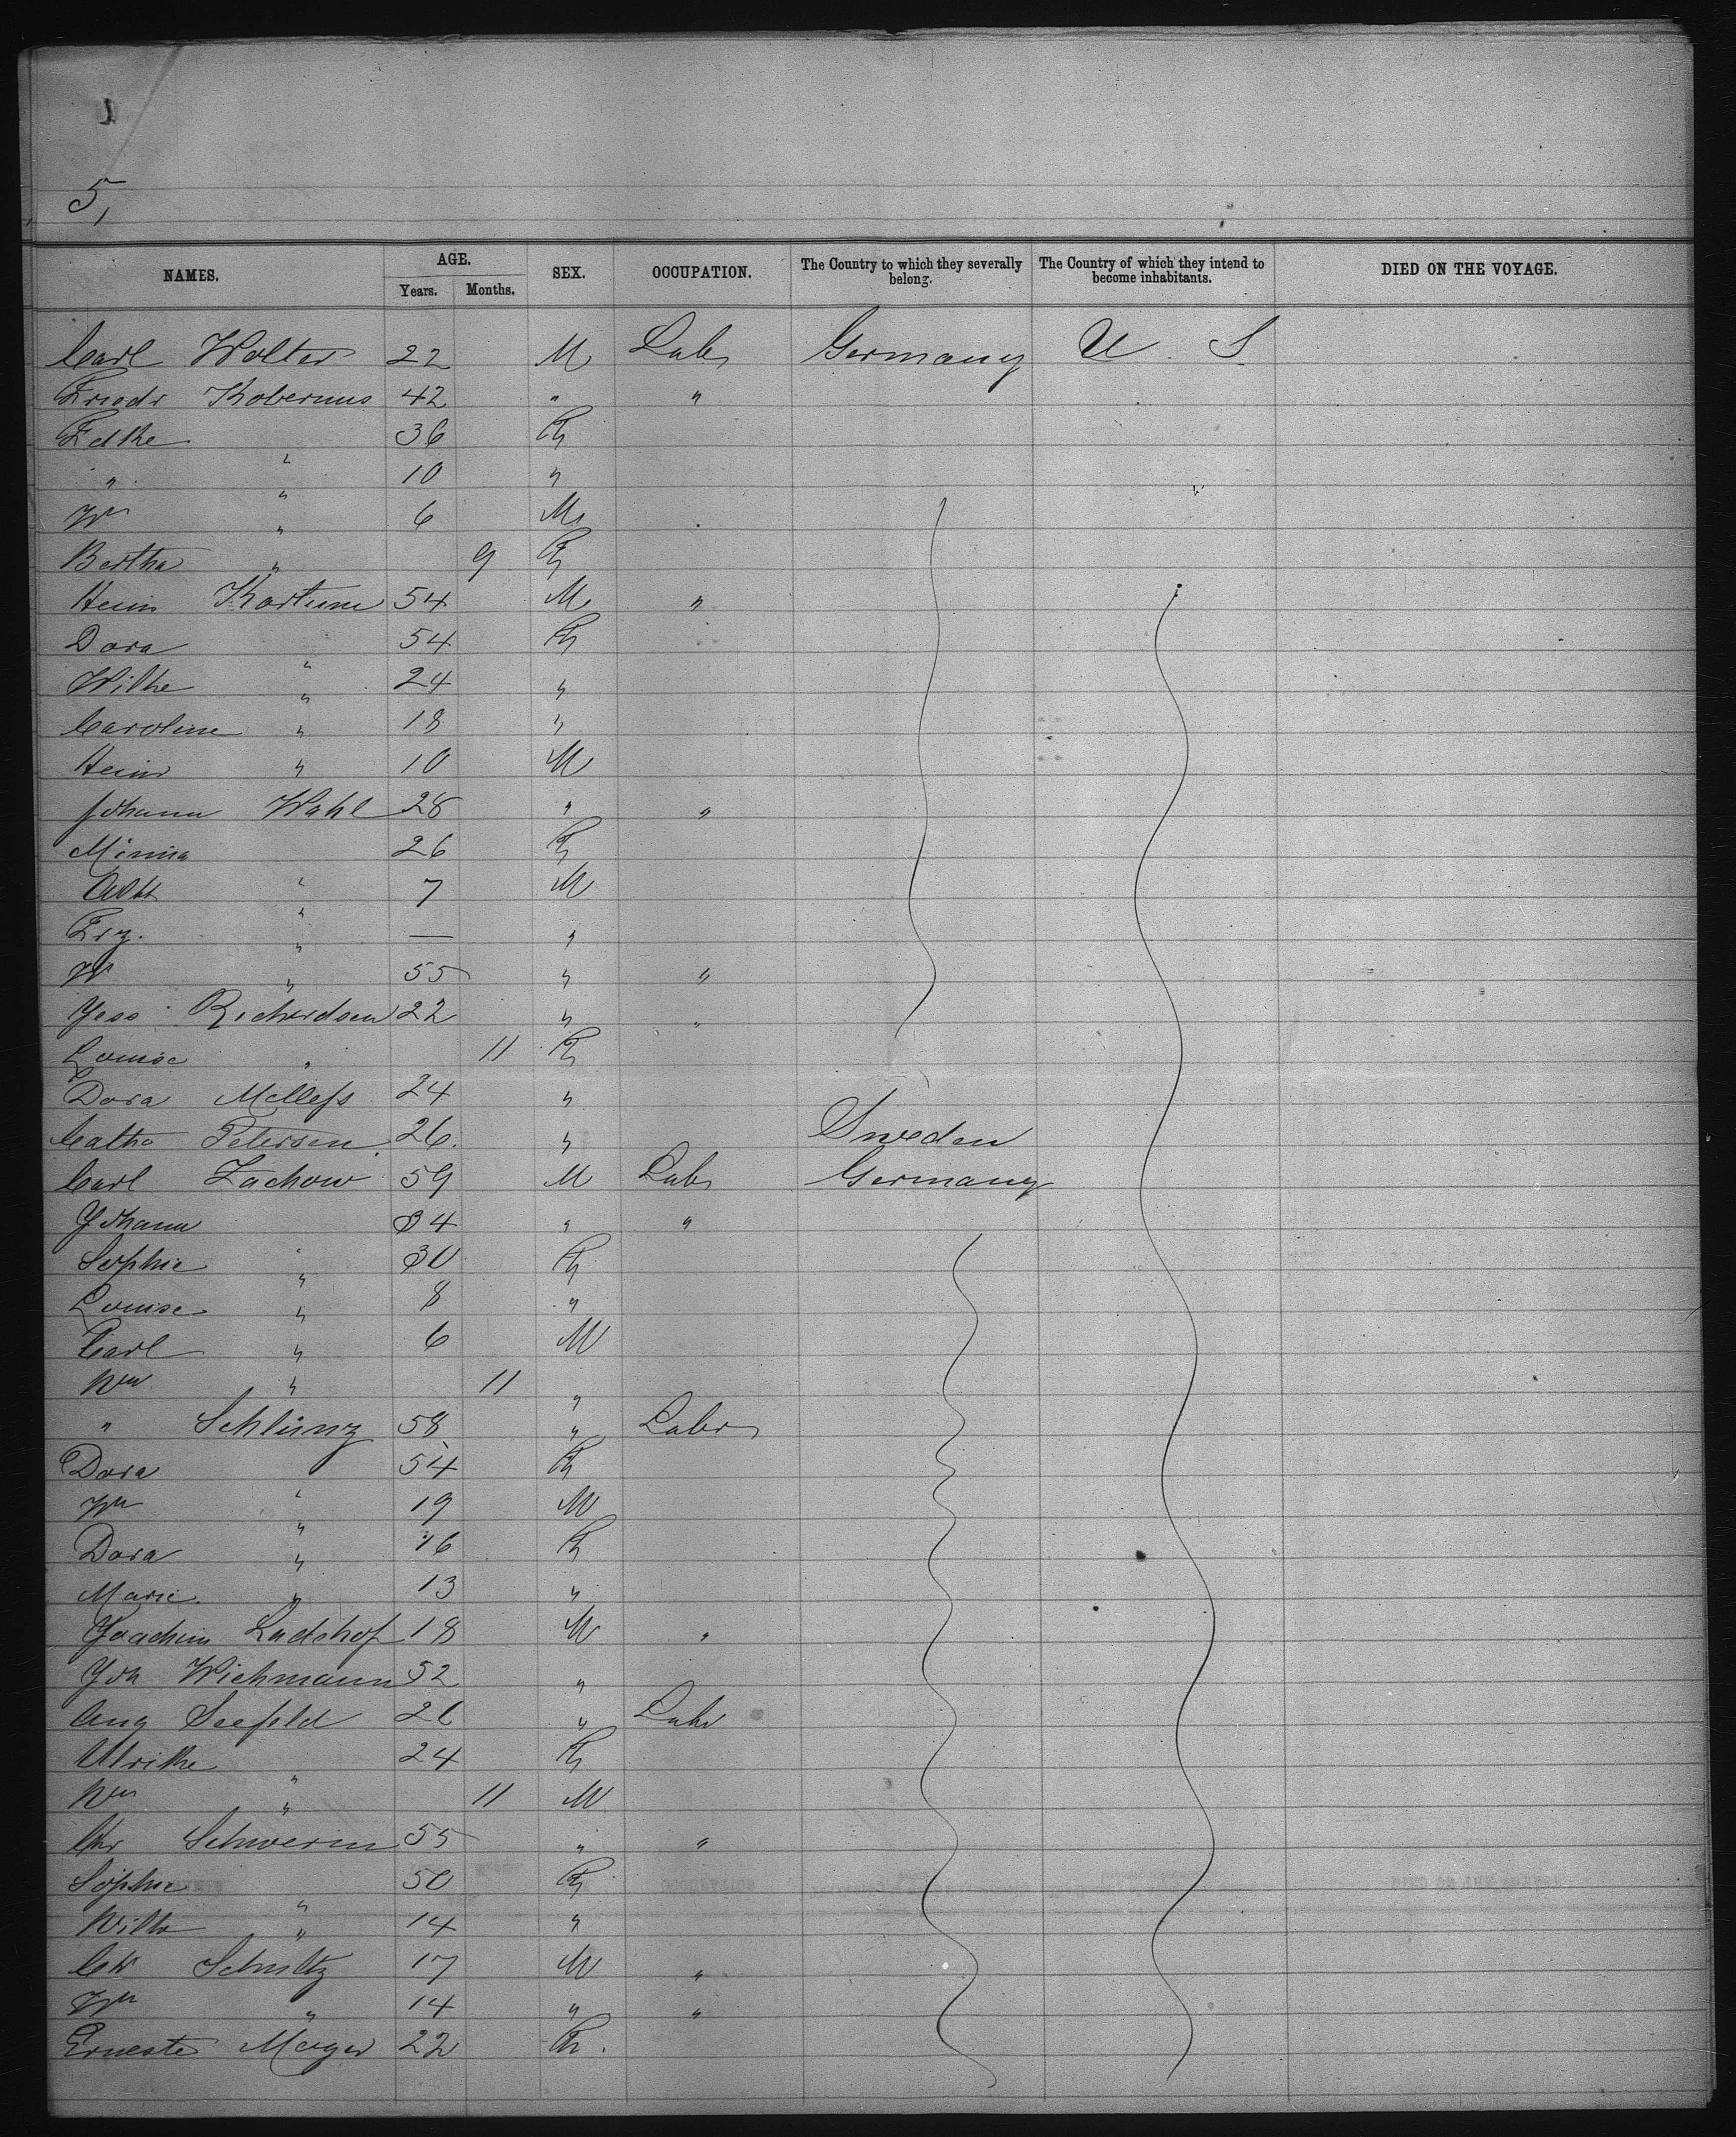 5,
NAMES. AGE. SEX. OCCUPATION. The Country to which they severally belong. The Country of which they intend to become inhabitants. DIED ON THE VOYAGE.
Years. Months.
Carl Wolter 22 M Labr Germany U. S
Friedr Kobernus 42 " "
36
" " 10 "
Wm " 6 M
Bertha " 9
Heinr Kortum 54 M "
Dora " 54
Wilhe " 24 "
Caroline " 18 "
Heinr " 10 M
Johann Wahl 28 " "
Minna " 26
Albt " 7 M
" — "
W " 55 " "
Jess Richardsen 22 " "
Louise " 11
Dora 24 "
Cathe Petersen 26 " Sweden
Carl Zachow 59 M Labr Germany
Johann " 34 " "
Sophie " 30
Louise " 8 "
Carl " 6 M
Wm " 11 "
" Schlünz 58 " Labr
Dora " 54
Wm " 19 M
Dora " 16
Marie " 13 "
Joachim Ladehof 18 M "
Joh Wichmann 52 "
Aug Seefeld 26 " Labr
Ulrike " 24
Wm " 11 M
Chr Schwerin 55 " "
Sophie " 50
Wilhe " 14 "
Schultz 17 M "
Wm " 14 " "
Erneste Meyer 22